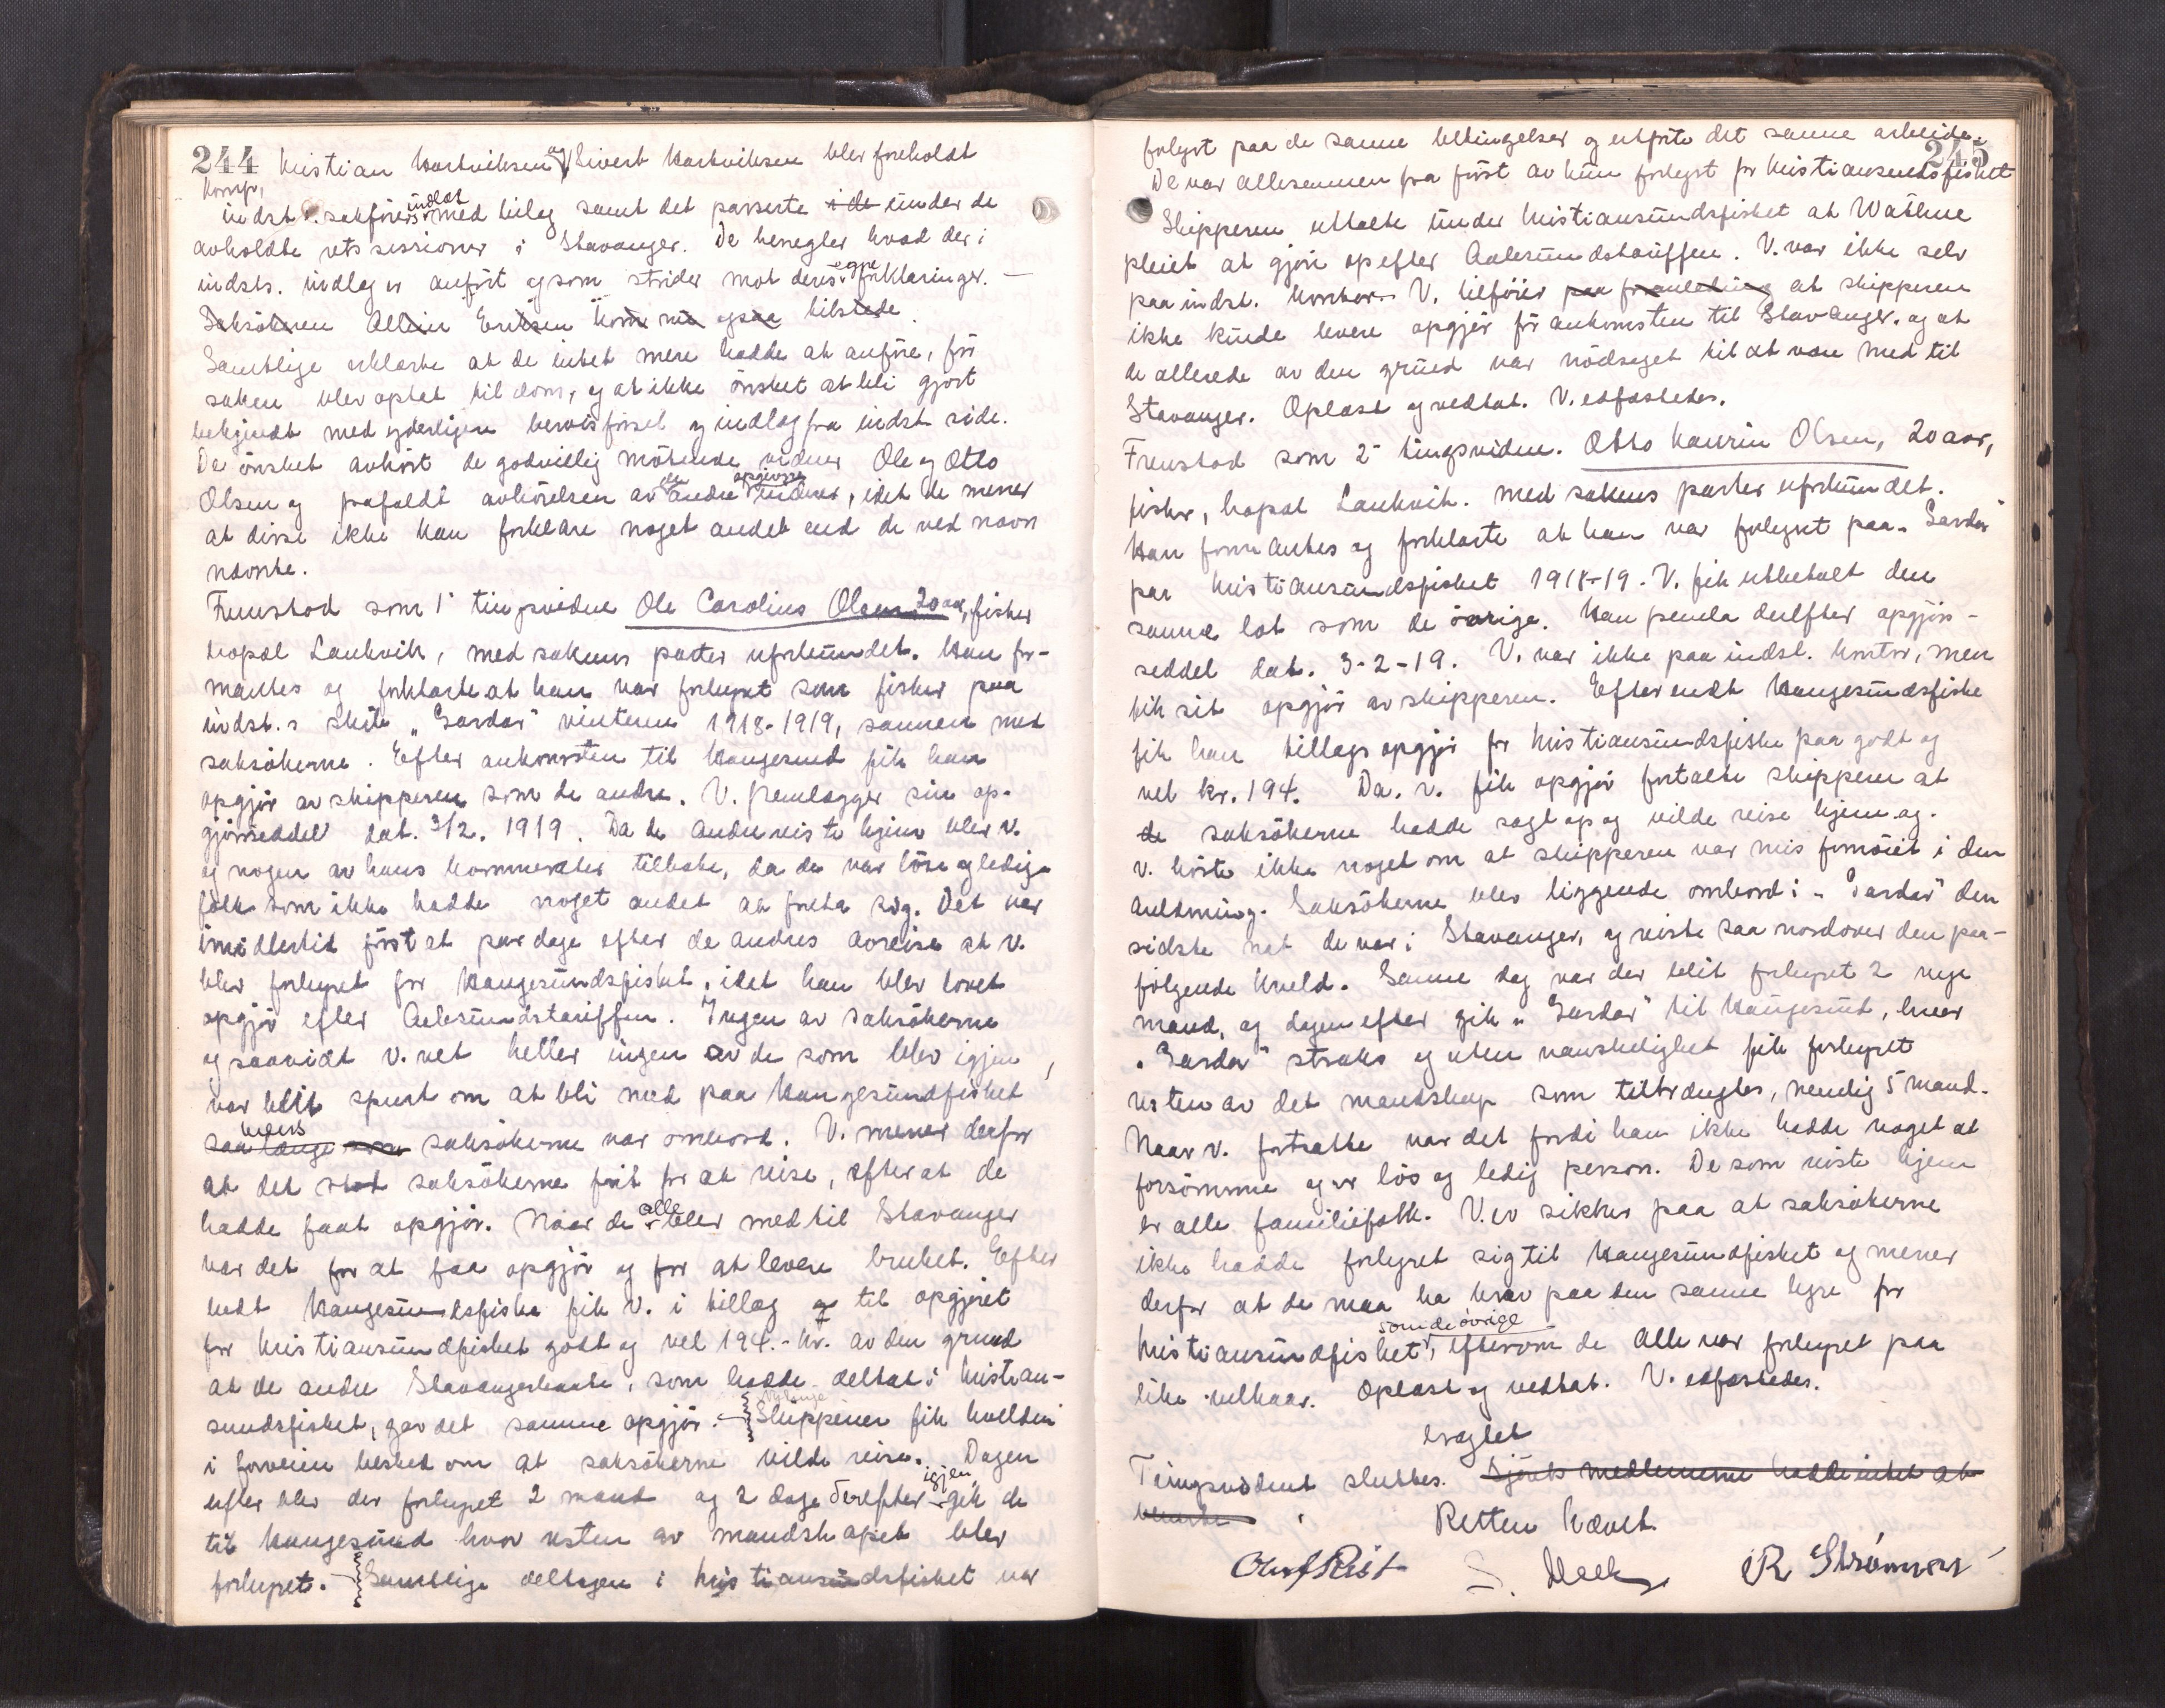 244 Kristian Hartviksen og Sivert Hartviksen blev foreholdt
Komp,
indst. sakförers indlæg med bilag samt det passerte i de under de
avholdte retssessioner i Stavanger. De benegter hvad der i
indsts. indlæg er anfört og som strider mot deres egne forklaringer. —
Saksökeren Albin Eriksen kom nu ogsaa tilstede.
Samtlige erklærte at de intet mere hadde at anföre, för
saken blev optat til dom, og at ikke önsket at bli gjort
bekjendt med yderligere bevisförsel og indlæg fra indst side.
De önsket avhört de godvillig mötende vidner Ole og Otto
Olsen og frafaldt avhörelsen av de andre opgivne vidner, idet de mener
at disse ikke kan forklare noget andet end de ved navn
nævnte.
Fremstod som 1' tingsvidne Ole Carolius Olsen 20 aar, fisker
bopæl Laukvik, med sakens parter uforbundet. Han for-
mantes og forklarte at han var forhyret som fisker paa
indst.s skite "Gardar" vinteren 1918-1919, sammen med
saksökerne. Efter ankomsten til Haugesund fik han
opgjör av skipperen som de andre. V. fremlægger sin op-
gjörsseddel dat. 3/2. 1919. Da de andre reiste hjem blev v.
og nogen av hans kammerater tilbake, da de var löse og ledige
folk som ikke hadde noget andet at foreta sig. Det var
imidlertid först et par dage efter de andres avreise at v.
blev forhyret for Haugesundsfisket, idet han blev lovet
opgjör efter Aalesundstariffen. Ingen av saksökerne
og saavidt v. vet heller ingen av de som blev igjen,
var blit spurt om at bli med paa Haugesundfisket
saalænge som mens saksökerne var ombord. V. mener derfor
at det stod saksökerne frit for at reise, efterat de
hadde faat opgjör. Naar de alle blev med til Stavanger
var det for at faa opgjör og for at levere bruket. Efter
endt Haugesundsfiske fik v. i tillæg og til opgjöret
for Kristiansundfisket godt og vel 194.- kr. av den grund
at de andre Stavangerbaate, som hadde deltat i Kristian-
sundsfisket, gav det samme opgjör. — Skipperen fik kvelden
i forveien besked om at saksökerne vilde reise. Dagen
efter blev der forhyret 2 mand og 2 dage derefter igjen gik de
til Haugesund hvor resten av mandskapet blev
forhyret. — Samtlige deltagere i Kristiansundsfisket var
245
forhyret paa de samme betingelser og utförte det samme arbeide.
De var allesammen fra först av kun forhyret for Kristiansundsfisket
Skipperen uttalte under Kristiansundsfisket at Wathne
pleiet at gjöre op efter Aalesundstariffen. V. var ikke selv
paa indst. kontor. V. tilföier paa foranledning at skipperen
ikke kunde levere opgjör för ankomsten til Stavanger, og at
de allerede av den grund var nödsaget til at være med til
Stavanger. Oplæst og vedtat. V. edfæstedes.
Fremstod som 2' tingsvidne. Otto Kaurin Olsen, 20 aar,
fisker, bopæl Laukvik. med sakens parter uforbundet.
Han formantes og forklarte at han var forhyret paa "Gardar"
paa Kristiansundsfisket 1918-19. V. fik utbetalt den
samme lot som de övrige. Han fremla derefter opgjörs-
seddel dat. 3-2-19. V. var ikke paa indst. kontor, men
fik sit opgjör av skipperen. Efter endt Haugesundsfiske
fik han tillægsopgjör for Kristiansundsfiske paa godt og
vel kr. 194. Da v. fik opgjör fortalte skipperen at
de saksökerne hadde sagt op og vilde reise hjem og.
v. hörte ikke noget om at skipperen var misfornöiet i den
anledning. Saksökerne blev liggende ombord i "Gardar" den
sidste nat de var i Stavanger, og reiste saa nordover den paa-
fölgende kveld. Samme dag var der blit forhyret 2 nye
mand, og dagen efter gik "Gardar" til Haugesund, hvor
"Gardar" straks og uten vanskelighet fik forhyret
resten av det mandskap som tiltrængtes, nemlig 5 mand.
Naar v. fortsatte var det fordi han ikke hadde noget at
forsömme og er lös og ledig person. De som reiste hjem
er alle familiefolk. V. er sikker paa at saksökerne
ikke hadde forhyret sig til Haugesundfisket og mener
derfor at de maa ha krav paa den samme hyre for
Kristiansundfisket som de övrige, eftersom de alle var forhyret paa
like vilkaar. Oplæst og vedtat. V. edfæstedes.
Tingsvidnet sluttes. Sjörets medlemmerne hadde intet at
bemerke.
Retten hævet.
R Strömmen